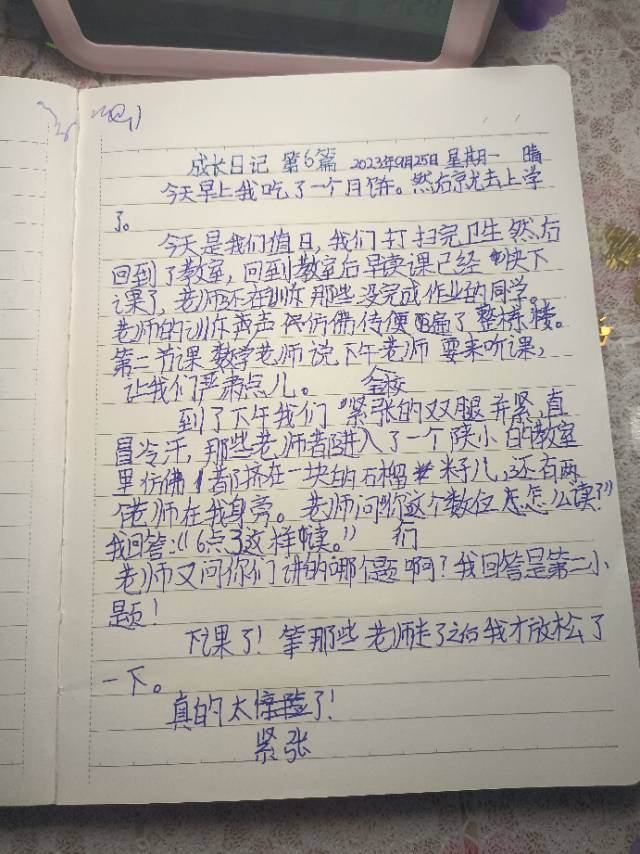 成长日记 第6篇 2023年9月25日 星期一 晴
今天早上我吃了一个月饼。然后就去上学
了。
今天是我们值日,我们打扫完卫生然后
回到了教室,回到教室后早读课已经快下
课了,老师还在训斥那些没完成作业的同学。
老师的训斥声仿佛传便遍了整栋楼。
第二节课数学老师说下午老师要来听课,
让我们严肃点儿。 全校
到了下午我们紧张的双腿并紧,直
冒冷汗,那些老师都进入了一个狭小的教室
里仿佛都挤在一块的石榴籽儿,还有两
个老师在我身旁。老师问“你这个数位怎怎么读?”
我回答:“6点3这样读。” 们
老师又问你们讲的哪个题啊?我回答是第二小
题!
下课了!等那些老师走了之后我才放松了
一下。
真的太惊险了!
紧张